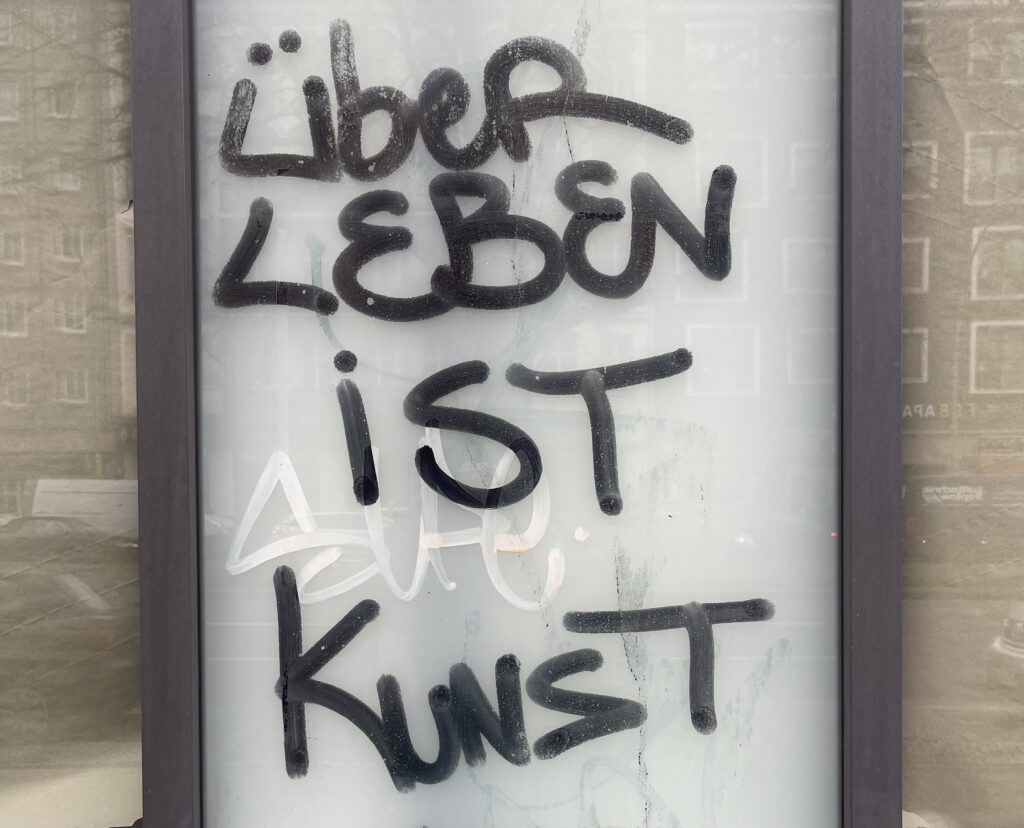 über
LEBEN
iST
KUNST